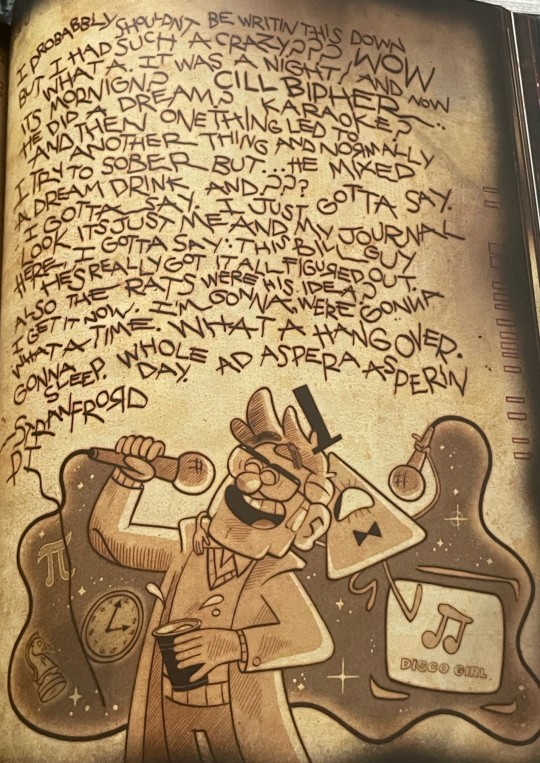 I PROBABBLY SHOULDNT BE WRITIN THIS DOWN
BUT I HAD SUCH A CRAZY??? WOW
WHAT A. IT WAS A NIGHT! AND NOW
ITS MORNIGN? CILL BIPHER
HE DID A DREAM? KARAOKE?
AND THEN ONE THING LED TO
ANOTHER THING AND NORMALLY
I TRY TO SOBER BUT... HE MIXED
A DREAM DRINK, AND???
I GOTTA SAY. I JUST GOTTA SAY.
LOOK ITS JUST ME AND MY JOURNAL
HERE. I GOTTA SAY: THIS BILL GUY
HES REALLY GOT IT ALL FIGURED OUT.
ALSO THE RATS WERE HIS IDEA?
I GET IT NOW. I'M GONNA, WERE GONNA
WHAT A TIME. WHAT A HANGOVER.
GONNA SLEEP. WHOLE DAY. AD ASPERA ASPERIN
-STRANFRORD
P I
π
DISCO GIRL